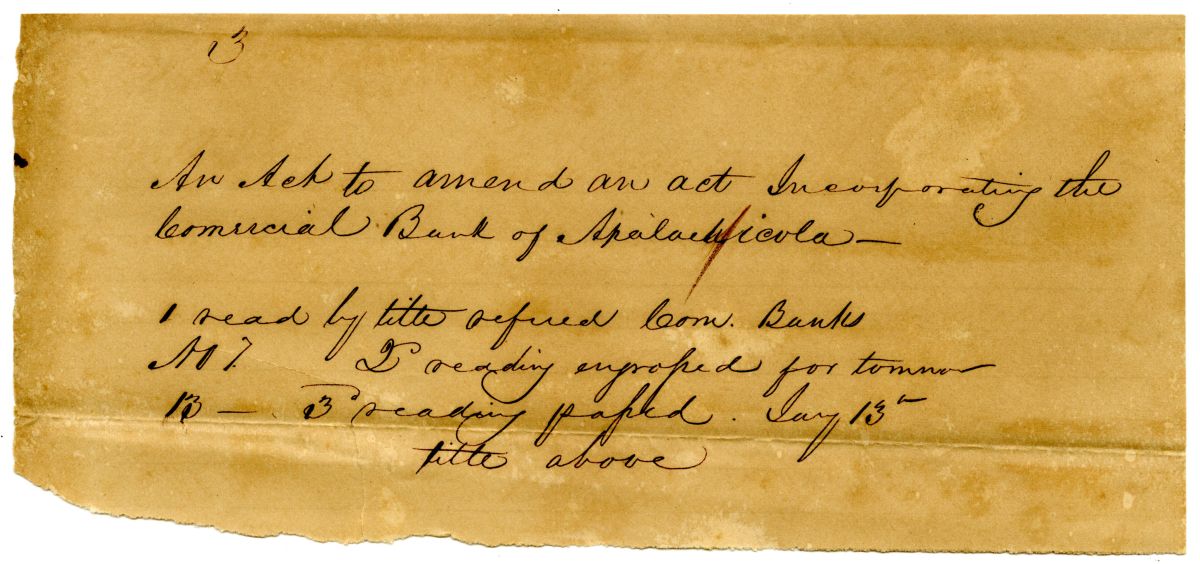 3
An Act to amend an act Incorporating the
Comercial Bank of Apalachicola —
1 read by title refered Com. Banks
2d reading engrossed for tomnow
13 — 3d reading passed. Jany 13th
title above